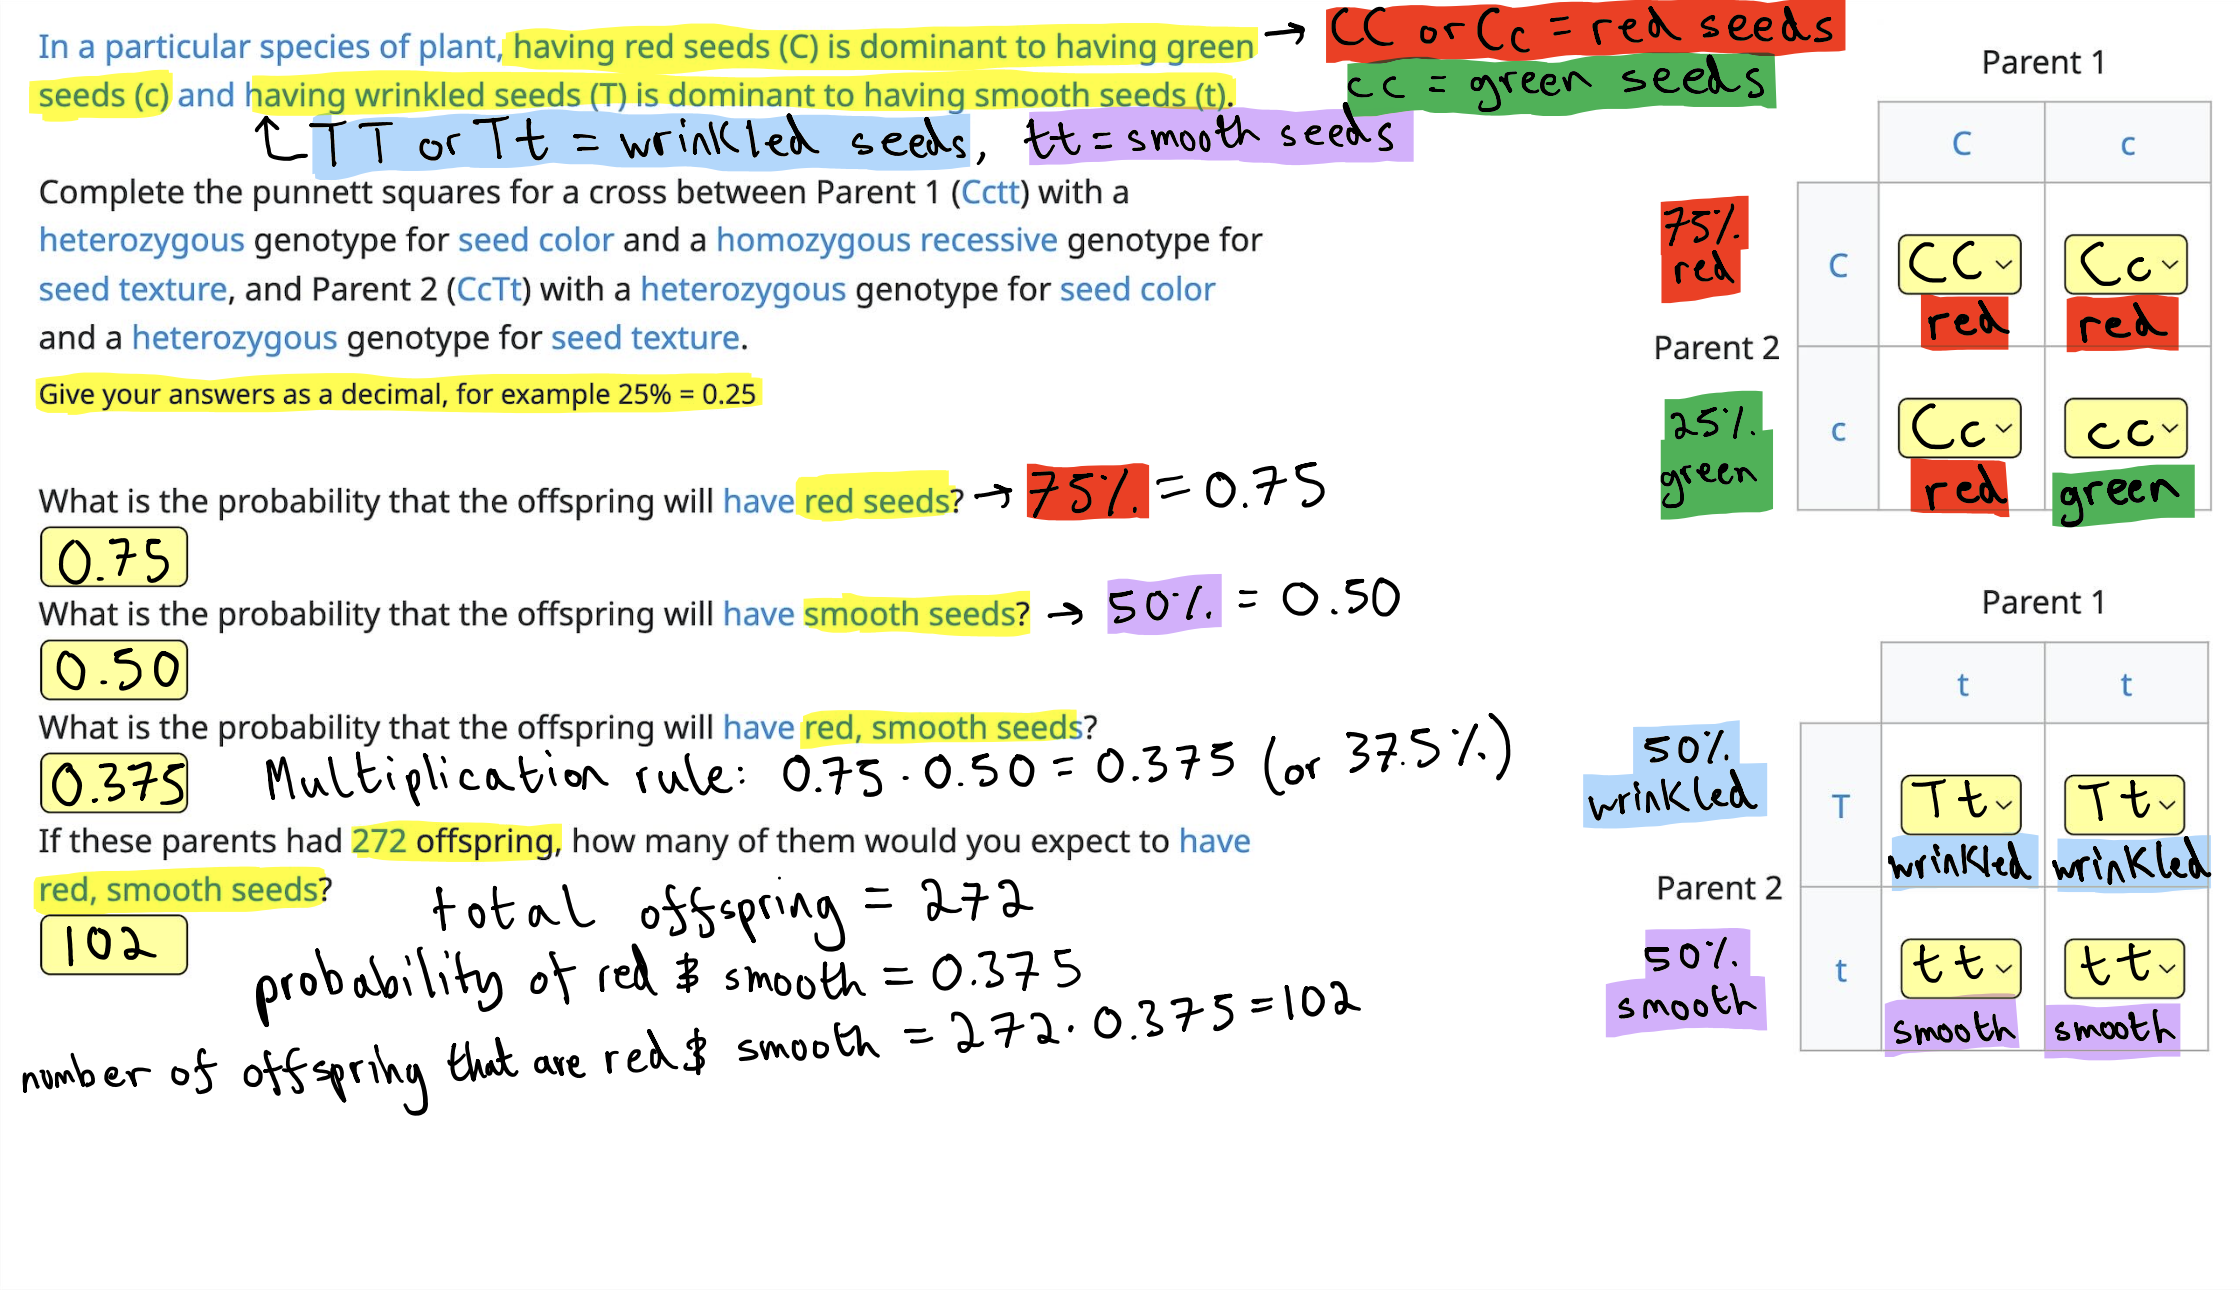 In a particular species of plant, having red seeds (C) is dominant to having green → CC or Cc = red seeds
seeds (c) and having wrinkled seeds (T) is dominant to having smooth seeds (t). cc = green seeds
TT or Tt = wrinkled seeds, tt = smooth seeds
Complete the punnett squares for a cross between Parent 1 (Cctt) with a
heterozygous genotype for seed color and a homozygous recessive genotype for
seed texture, and Parent 2 (CcTt) with a heterozygous genotype for seed color
and a heterozygous genotype for seed texture.
Give your answers as a decimal, for example 25% = 0.25
What is the probability that the offspring will have red seeds? → 75% = 0.75
0.75
What is the probability that the offspring will have smooth seeds? → 50% = 0.50
0.50
What is the probability that the offspring will have red, smooth seeds?
0.375 Multiplication rule: 0.75 · 0.50 = 0.375 (or 37.5%)
If these parents had 272 offspring, how many of them would you expect to have
red, smooth seeds?
102
total offspring = 272
probability of red & smooth = 0.375
number of offspring that are red & smooth = 272 · 0.375 = 102
Parent 1
C c
75%
red
C CC Cc
red red
Parent 2
25%
green
c Cc cc
red green
Parent 1
t t
50%
wrinkled
T Tt Tt
wrinkled wrinkled
Parent 2
50%
smooth
t tt tt
smooth smooth